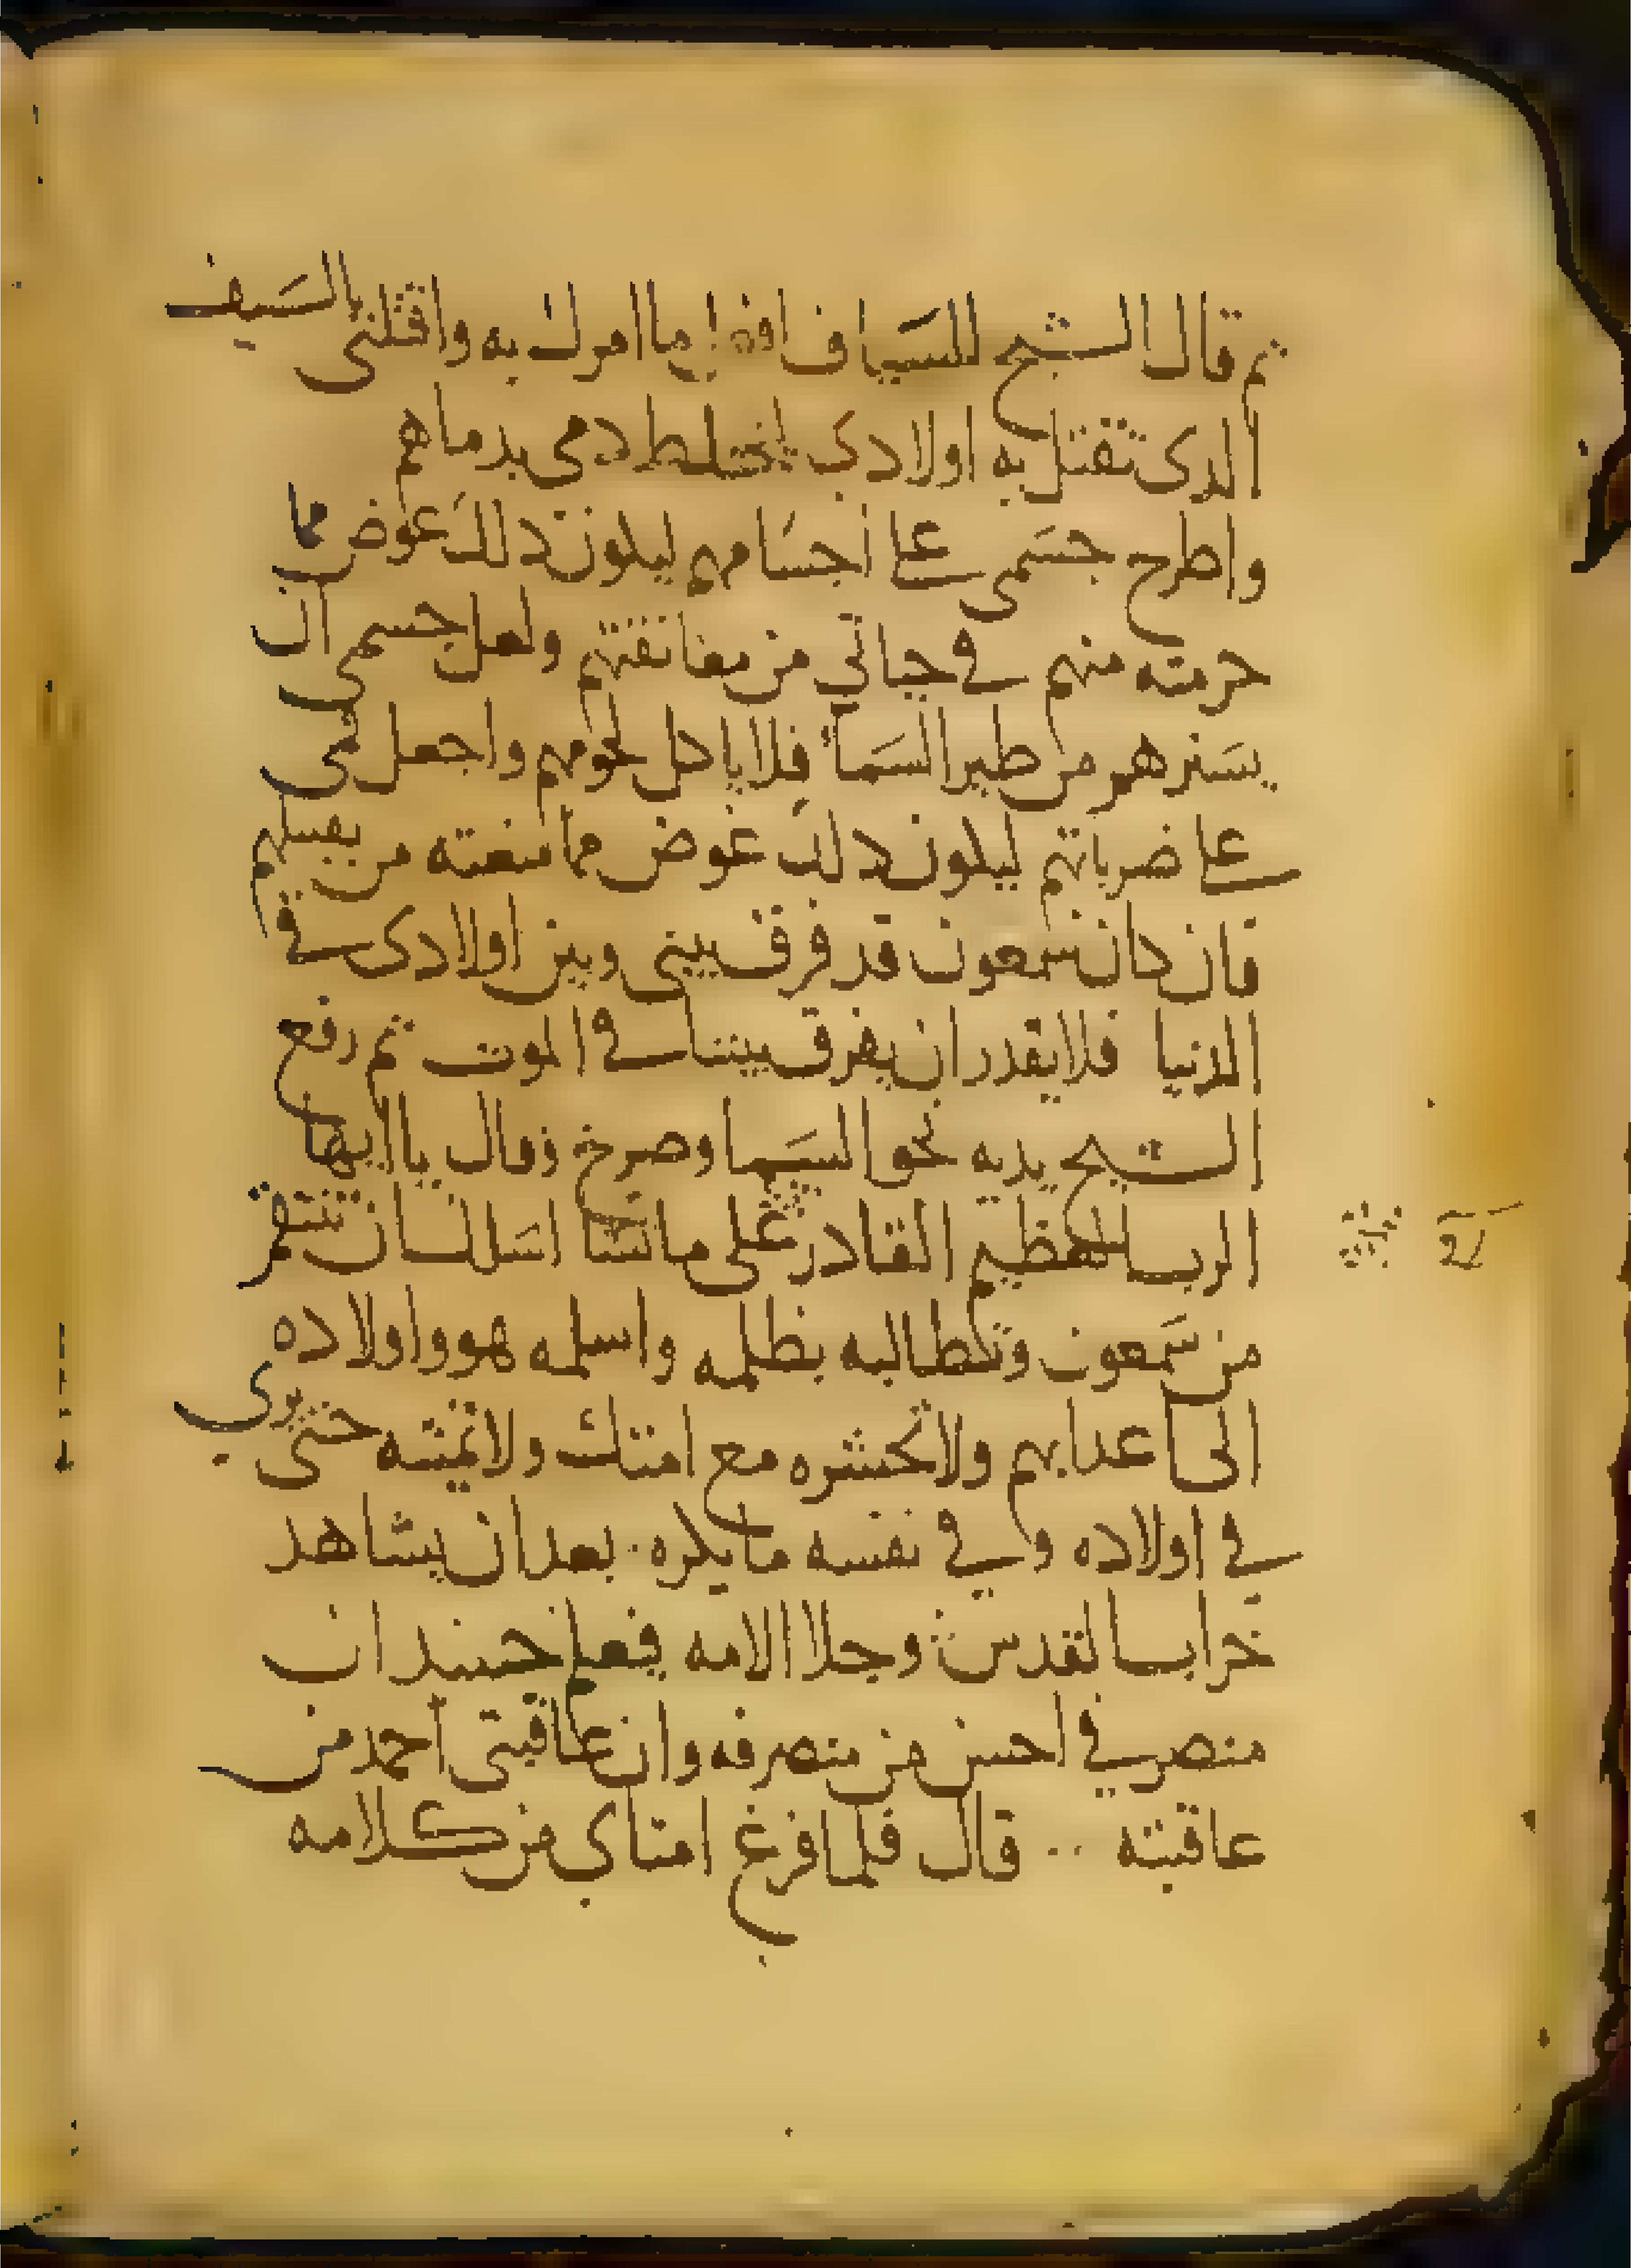 ثم قال الشيخ للسياف افعل ما امرك به واقتلني بالسيف
الدى تقتل به اولادى ليختلط دمى بدماهم
واطرح جسمى على اجسامهم ليكون دلك عوض مما
حرمته منهم في حياتي من معانقتهم ولعل جسمى ان
يسترهم من طير السماء فلا ياكل لحومهم واجعل فمى
على ضرباتهم ليكون دلك عوض مما منعته من
فان كان سمعون قد فرق بينى وبين اولادى في
الدنيا فلا يقدر ان يفرق بيننا في الموت ثم رفع
الشيخ يديه نحو السما وصرخ وقال يا ايها
الرب العظيم القادر على ما تشا اسلك ان تنتقم
من سمعون وتطالبه بظلمه واسلمه هو واولاده
الى اعدايهم ولا تحشره مع امتك ولا تميته حتى يرى
في اولاده وفي نفسه ما يكره بعد ان يشاهد
خراب القدس وجلا الامه فيعلم حينيد ان
منصرفي احسن من منصرفه وان عاقبتى احمد من
عاقبته قال فلما فرغ امتاى من كلامه